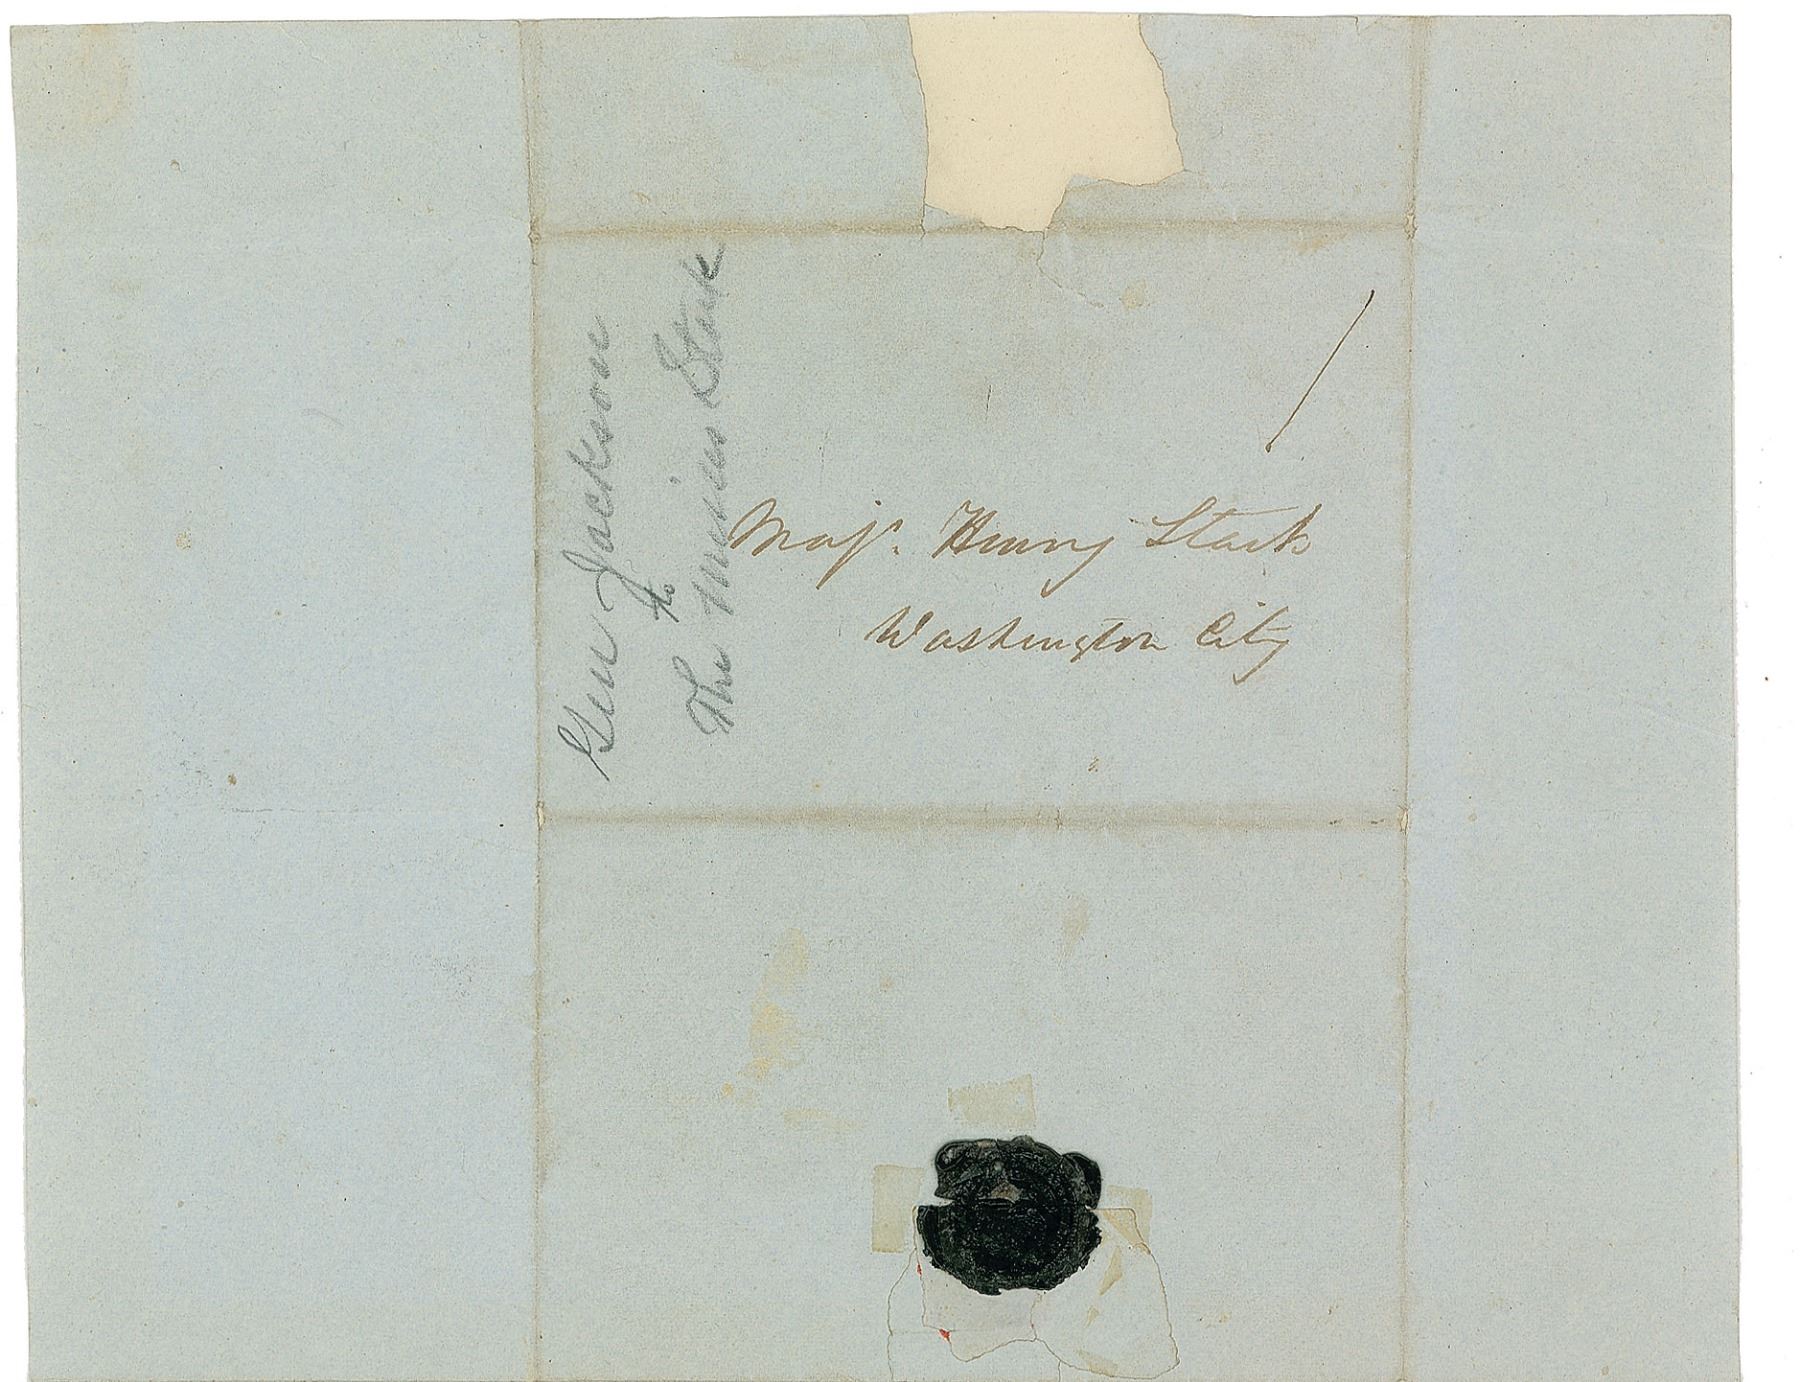 Gen Jackson
to
The Misses Stark
Majr. Henry Stark
Washington City